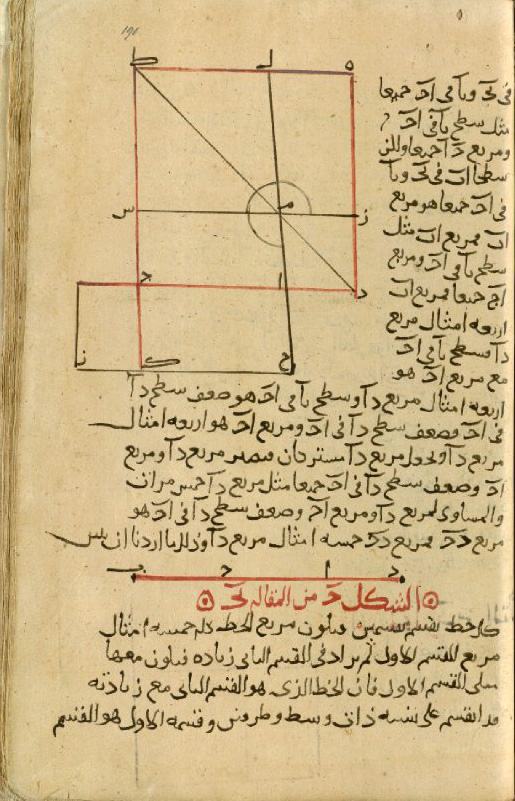 ه ل ط
ز م س
د ا ج
ح ك ن
في بج وبا في اج جميعا
مثل سطح با في اج
ومربع دا جميعا
سطحا اب في بج وبا
في اج جميعا هو مربع
اب فمربع اب مثل
سطح با في اج ومربع
اج جميعا فمربع اب
اربعه امثال مربع
دا وسطح با في اج
مع مربع اج هو
اربعه امثال مربع دا وسطح با في اج هو ضعف سطح دا
في اج فضعف سطح دا في اج ومربع اج هو اربعه امثال
مربع دا ونجعل مربع دا مشتركا فيصير مربع دا ومربع
اج وضعف سطح دا في اج جميعا مثل مربع دا خمس مرات
والمساوي لمربع دا ومربع اج وضعف سطح دا في اج هو
مربع دج فمربع دج خمسه امثال مربع دا وذلك ما اردنا ان نبين
د ا ج ب
الشكل ب من المقاله يج
كل خط يقسم بقسمين فيكون مربع الخط كله خمسه امثال
مربع القسم الاول ثم يزاد في القسم الثاني زياده فيكون معها
مثلي القسم الاول فان الخط الذي هو القسم الثاني مع زيادته
قد انقسم على نسبه ذات وسط وطرفين وقسمه الاول هو القسم